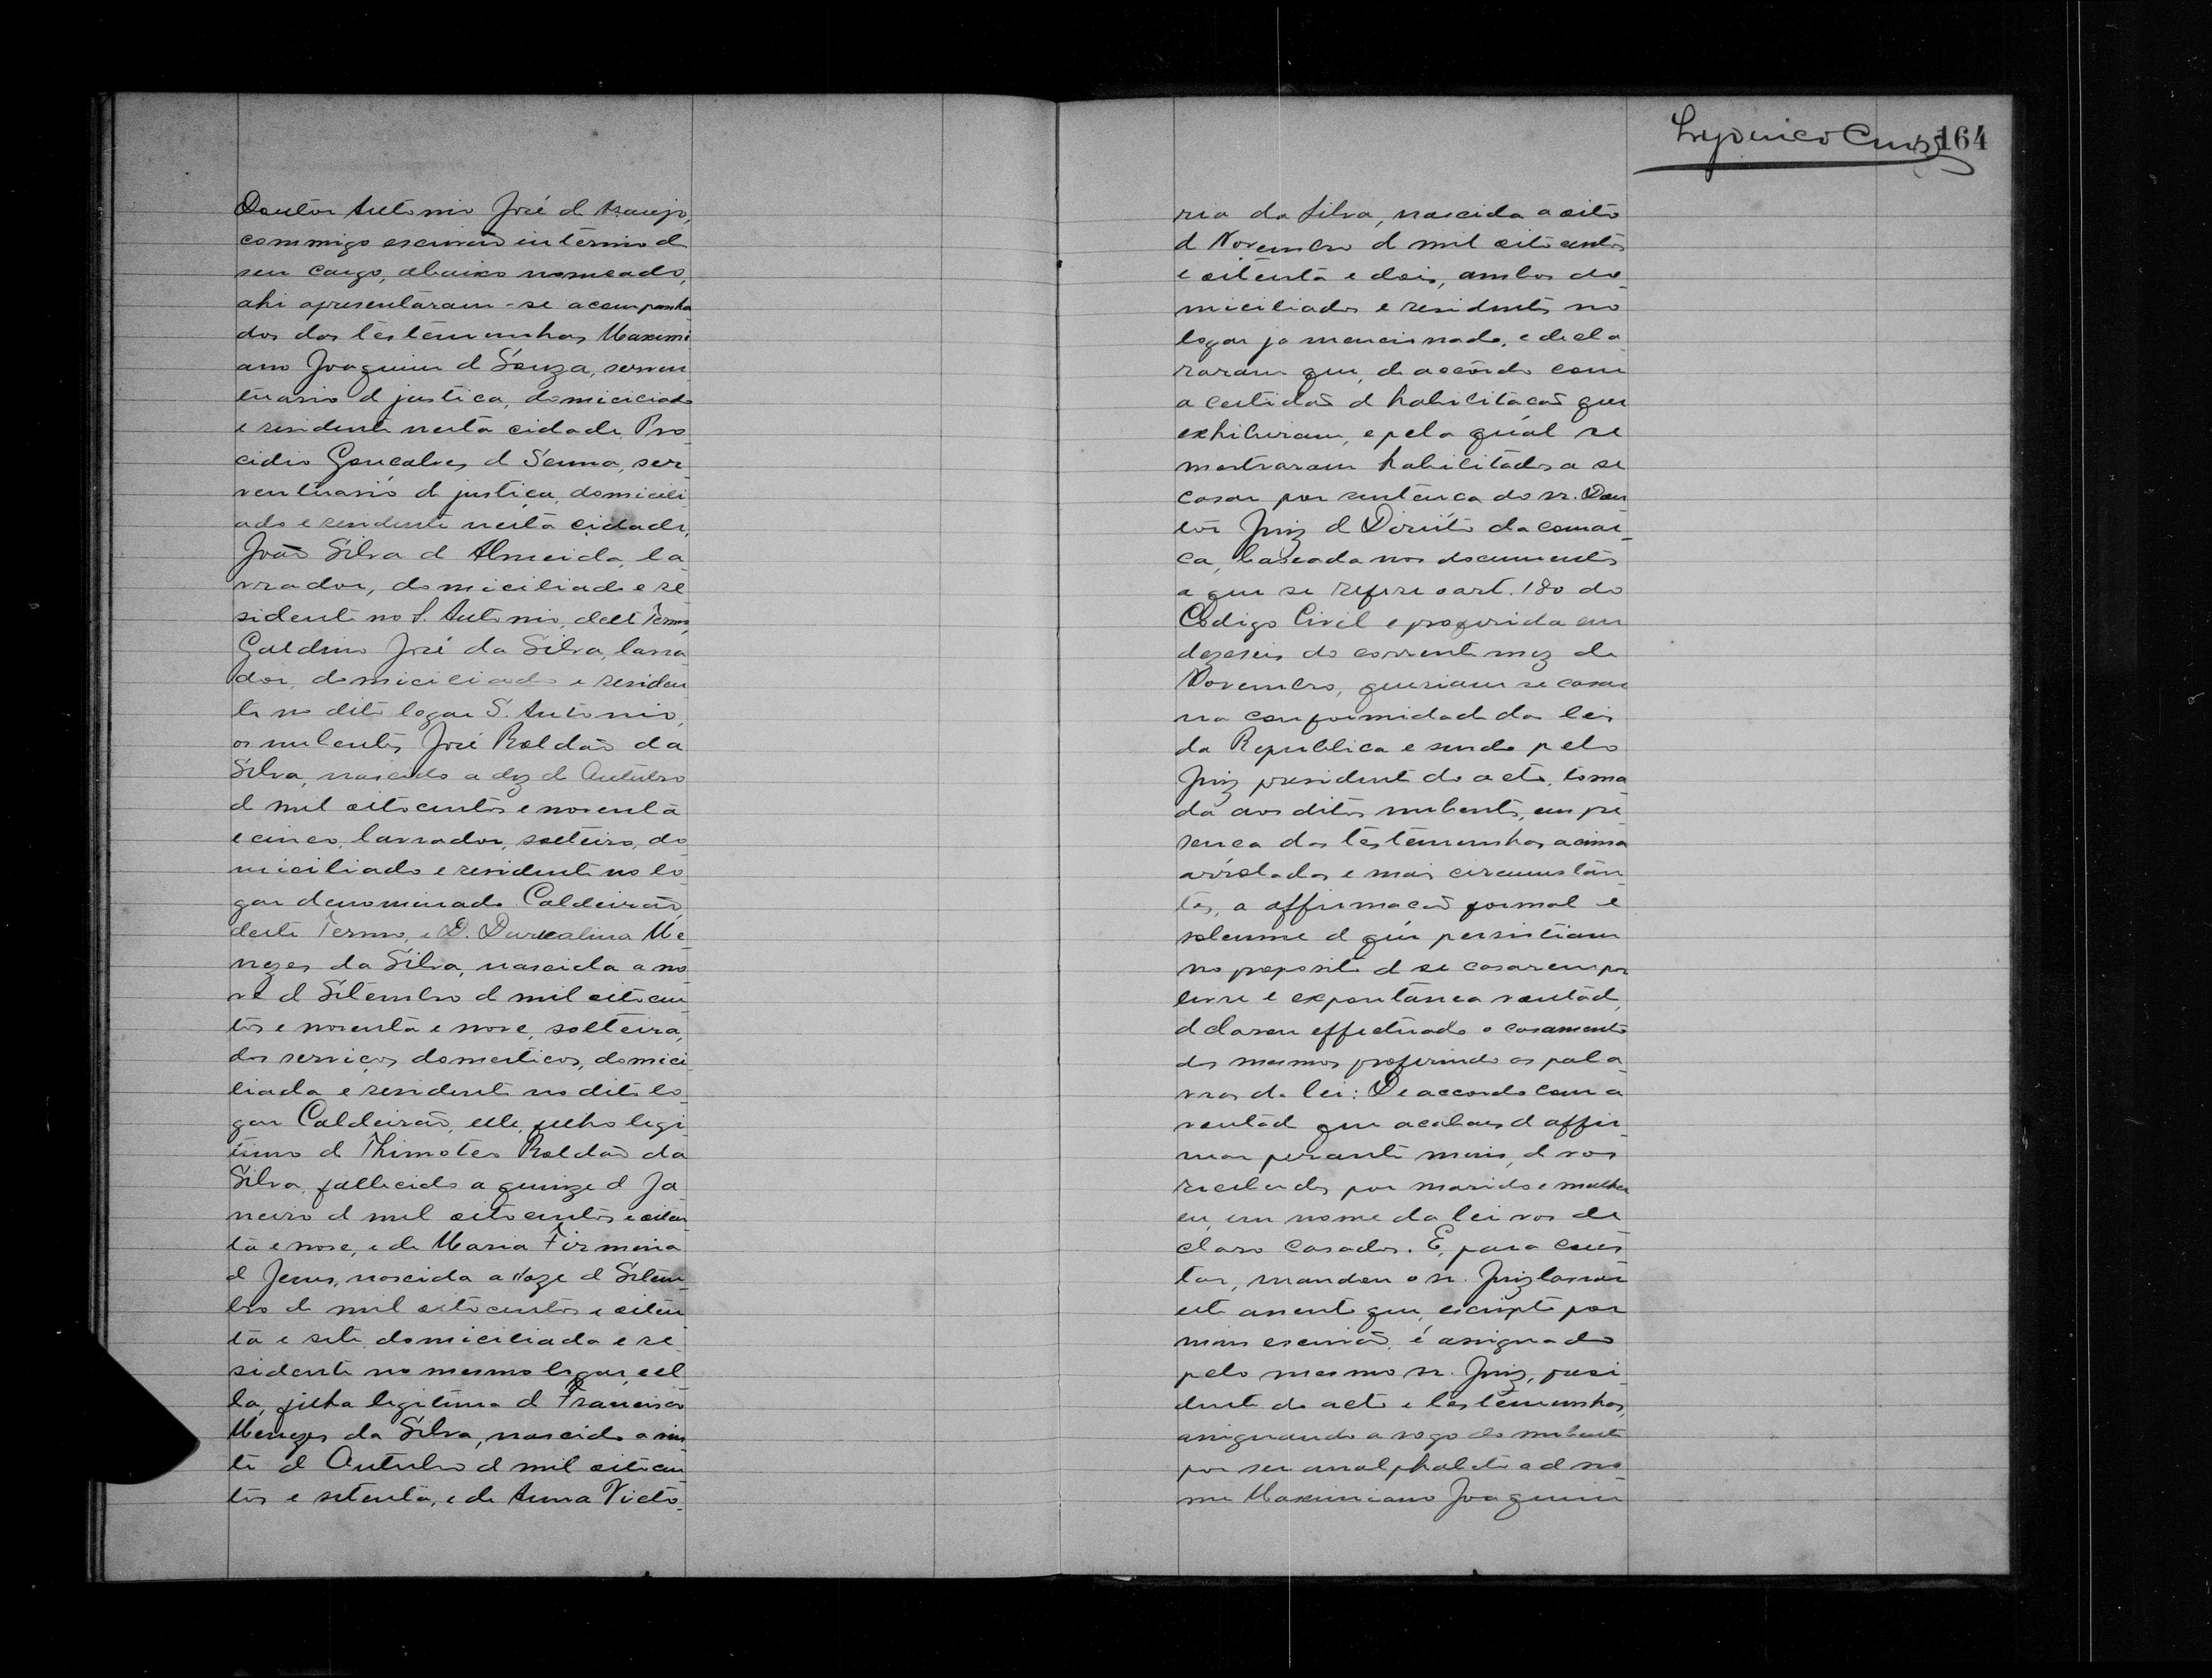 Doutor Antonio José d Araujo,
commigo escrivão interino d
seu cargo, abaixo nomeado,
ahi apresentaram-se acompanha
dos das testemunhas Maximi
ano Joaquim d Souza, serven
tuario d justiça, domiciliado
e residente nesta cidade, Pro
cidio Gonçalves d Senna, ser
ventuario d justiça, domicili
ado e residente nesta cidade,
João Silva d Almeida, la
vrador, domiciliado e re
sidente no S. Antonio, deste Termo,
Galdino José da Silva, lavra
dor, domiciliado e residen
te no dito logar S. Antonio,
os nubentes José Roldão da
Silva, nascido a dez de Outubro
d mil oitocentos e noventa
e cinco, lavrador, solteiro, do
miciliado e residente no lo
gar denominado Caldeirão,
deste Termo, e D. Durvalina Me
nezes da Silva, nascida a no
ve d Setembro d mil oitocen
tos e noventa e nove, solteira,
dos serviços domesticos, domici
liada e residente no dito lo
gar Caldeirão, elle, filho legi
timo d Thimoteo Roldão da
Silva, fallecido a quinze d Ja
neiro d mil oitocentos e oiten
ta e nove, e de Maria Firmina
d Jesus, nascida a doze d Setem
bro de mil oitocentos e oiten
ta e sete, domiciliada e re
sidente no mesmo logar, e el
la, filha legitima d Francisco
Menezes da Silva, nascido a vin
te d Outubro d mil oitocen
tos e setenta, e de Anna Victo
164
ria da Silva, nascida a oito
d Novembro d mil oitocentos
e oitenta e dois, ambos do
miciliados e residentes no
logar já mencionado, e decla
raram que, de accordo com
a certidão d habilitação que
exhibiram, e pela qual se
mostraram habilitados a se
casar por sentença do sr. Dou
tor Juiz d Direito da comar
ca, baseada nos documentos
a que se refere o art. 180 do
Codigo Civil e proferida em
dezeseis do corrente mez de
Novembro, queriam se casar
na conformidade das leis
da Republica e sendo pelo
Juiz presidente do acto, toma
da aos ditos nubentes, em pre
sença das testemunhas acima
arroladas e mais circumstan
tes, a affirmação formal e
solemne d que persistiam
no proposito d se casarem por
livre e expontanea vontad,
declarou effectuado o casamento
dos mesmos proferindo as pala
vras da lei: De accordo com a
vontad que acabaes d affir
mar perante mim, d vos
receberdes por marido e mulher
eu, em nome da lei vos de
claro casados. E, para cons
tar, mandou o sr. Juiz lavrar
este assento que, escripto por
mim escrivão, é assignado
pelo mesmo sr. Juiz, presi
dente do acto e testemunhas,
assignando a rogo do nubente
por ser analphabeto e d no
me Maximiano Joaquim